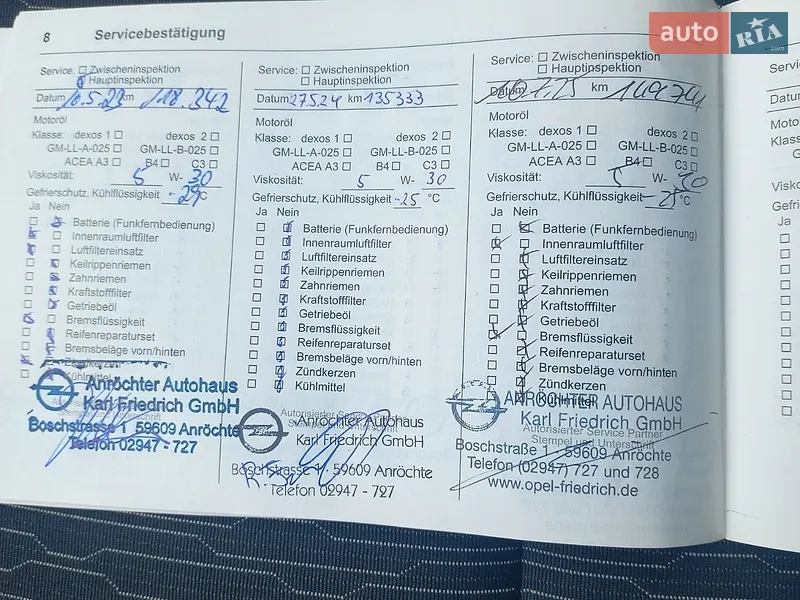 8 Servicebestätigung
auto RIA .com
Service: ☐ Zwischeninspektion
Hauptinspektion
Datum 10.5.23 km 118.342
Motoröl
Klasse: dexos 1 ☐ dexos 2 ☐
GM-LL-A-025 ☐ GM-LL-B-025 ☐
ACEA A3 ☐ B4 ☐ C3 ☐
Viskosität: 5 W- 30
Gefrierschutz, Kühlflüssigkeit °C
Ja Nein
Batterie (Funkfernbedienung)
Innenraumluftfilter
Luftfiltereinsatz
Keilrippenriemen
Zahnriemen
Kraftstofffilter
Getriebeöl
Bremsflüssigkeit
Reifenreparaturset
Bremsbeläge vorn/hinten
Zündkerzen
Kühlmittel
Anröchter Autohaus
Karl Friedrich GmbH
Boschstrasse 1 59609 Anröchte
Telefon 02947 - 727
Service: ☐ Zwischeninspektion
☐ Hauptinspektion
Datum 27.5.24 km 135333
Motoröl
Klasse: dexos 1 ☐ dexos 2 ☐
GM-LL-A-025 ☐ GM-LL-B-025 ☐
ACEA A3 ☐ B4 ☐ C3 ☐
Viskosität: 5 W- 30
Gefrierschutz, Kühlflüssigkeit -25 °C
Ja Nein
Batterie (Funkfernbedienung)
Innenraumluftfilter
Luftfiltereinsatz
Keilrippenriemen
Zahnriemen
Kraftstofffilter
Getriebeöl
Bremsflüssigkeit
Reifenreparaturset
Bremsbeläge vorn/hinten
Zündkerzen
Kühlmittel
Autorisierter Service
Anröchter Autohaus
Karl Friedrich GmbH
Boschstrasse 1 · 59609 Anröchte
Telefon 02947 - 727
Service: ☐ Zwischeninspektion
☐ Hauptinspektion
Datum km
Motoröl
Klasse: dexos 1 ☐ dexos 2 ☐
GM-LL-A-025 ☐ GM-LL-B-025 ☐
ACEA A3 ☐ B4 ☐ C3 ☐
Viskosität: 5 W-
Gefrierschutz, Kühlflüssigkeit -25 °C
Ja Nein
Batterie (Funkfernbedienung)
Innenraumluftfilter
Luftfiltereinsatz
Keilrippenriemen
Zahnriemen
Kraftstofffilter
Getriebeöl
Bremsflüssigkeit
Reifenreparaturset
Bremsbeläge vorn/hinten
Zündkerzen
ANRÖCHTER AUTOHAUS
Karl Friedrich GmbH
Autorisierter Service Partner
Stempel und Unterschrift
Boschstraße 1 · 59609 Anröchte
Telefon (02947) 727 und 728
www.opel-friedrich.de